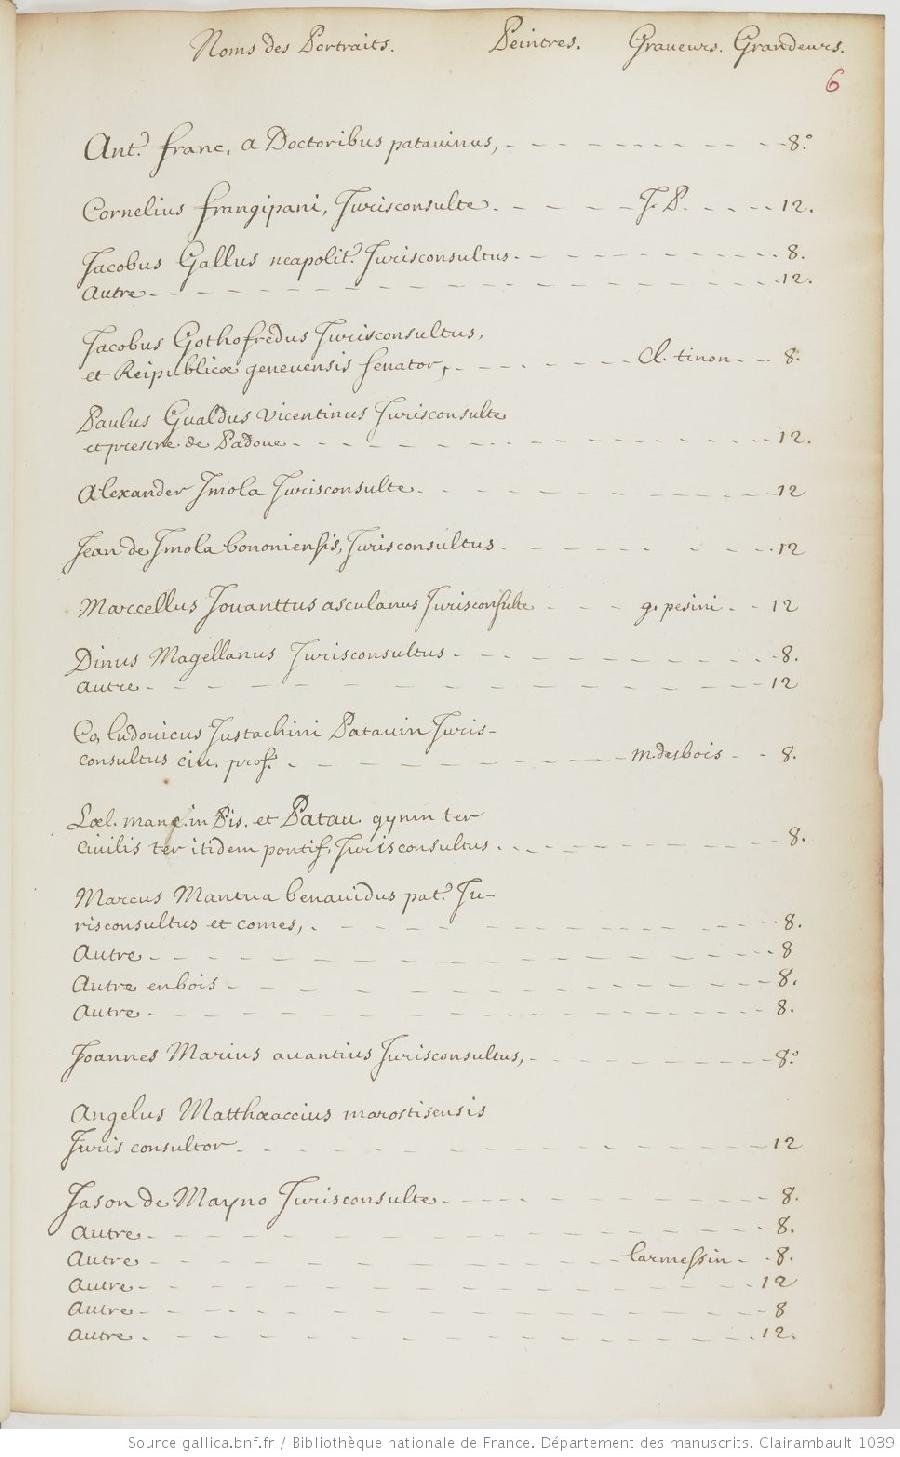 Noms des Portraits. Peintres. Graveurs. Grandeurs.
6
Ant.º franc, a Doctoribus patavinus, 8.º
Cornelius frangipani, Jurisconsulte. J. P. 12.
Jacobus Gallus neapolit.º Jurisconsultus. 8.
Autre 12.
Jacobus Gothofredus Jurisconsultus,
et Reipublicæ genevensis senator, Cl. tinon 8.
Paulus Gualdus vicentinus Jurisconsulte
et prestre de Padoue 12.
Alexander Jmola Jurisconsulte. 12
Jean de Jmola bononiensis, Jurisconsultus 12
Marcellus Jouanttus asculanus Jurisconsulte g. pesini 12
Dinus Magellanus Jurisconsultus 8.
autre 12
Co, ludovicus Justachini Patavin Juris-
consultus civ. prof. m. desbois 8.
Læl. manc. in Pis. et Patau. gymn ter
civilis ter itidem pontif, Jurisconsultus. 8.
Marcus Mantua benavidus pat.º Ju-
risconsultus et comes, 8.
Autre 8
Autre en bois 8.
Autre 8.
Joannes Marius avantius Jurisconsultus, 8.º
Angelus Matthæaccius marostisensis
Juris consultor 12
Jason de Mayno Jurisconsulte 8.
Autre 8.
Autre larmessin 8.
Autre 12
Autre 8
Autre 12.
Source gallica.bnf.fr / Bibliothèque nationale de France. Département des manuscrits. Clairambault 1039